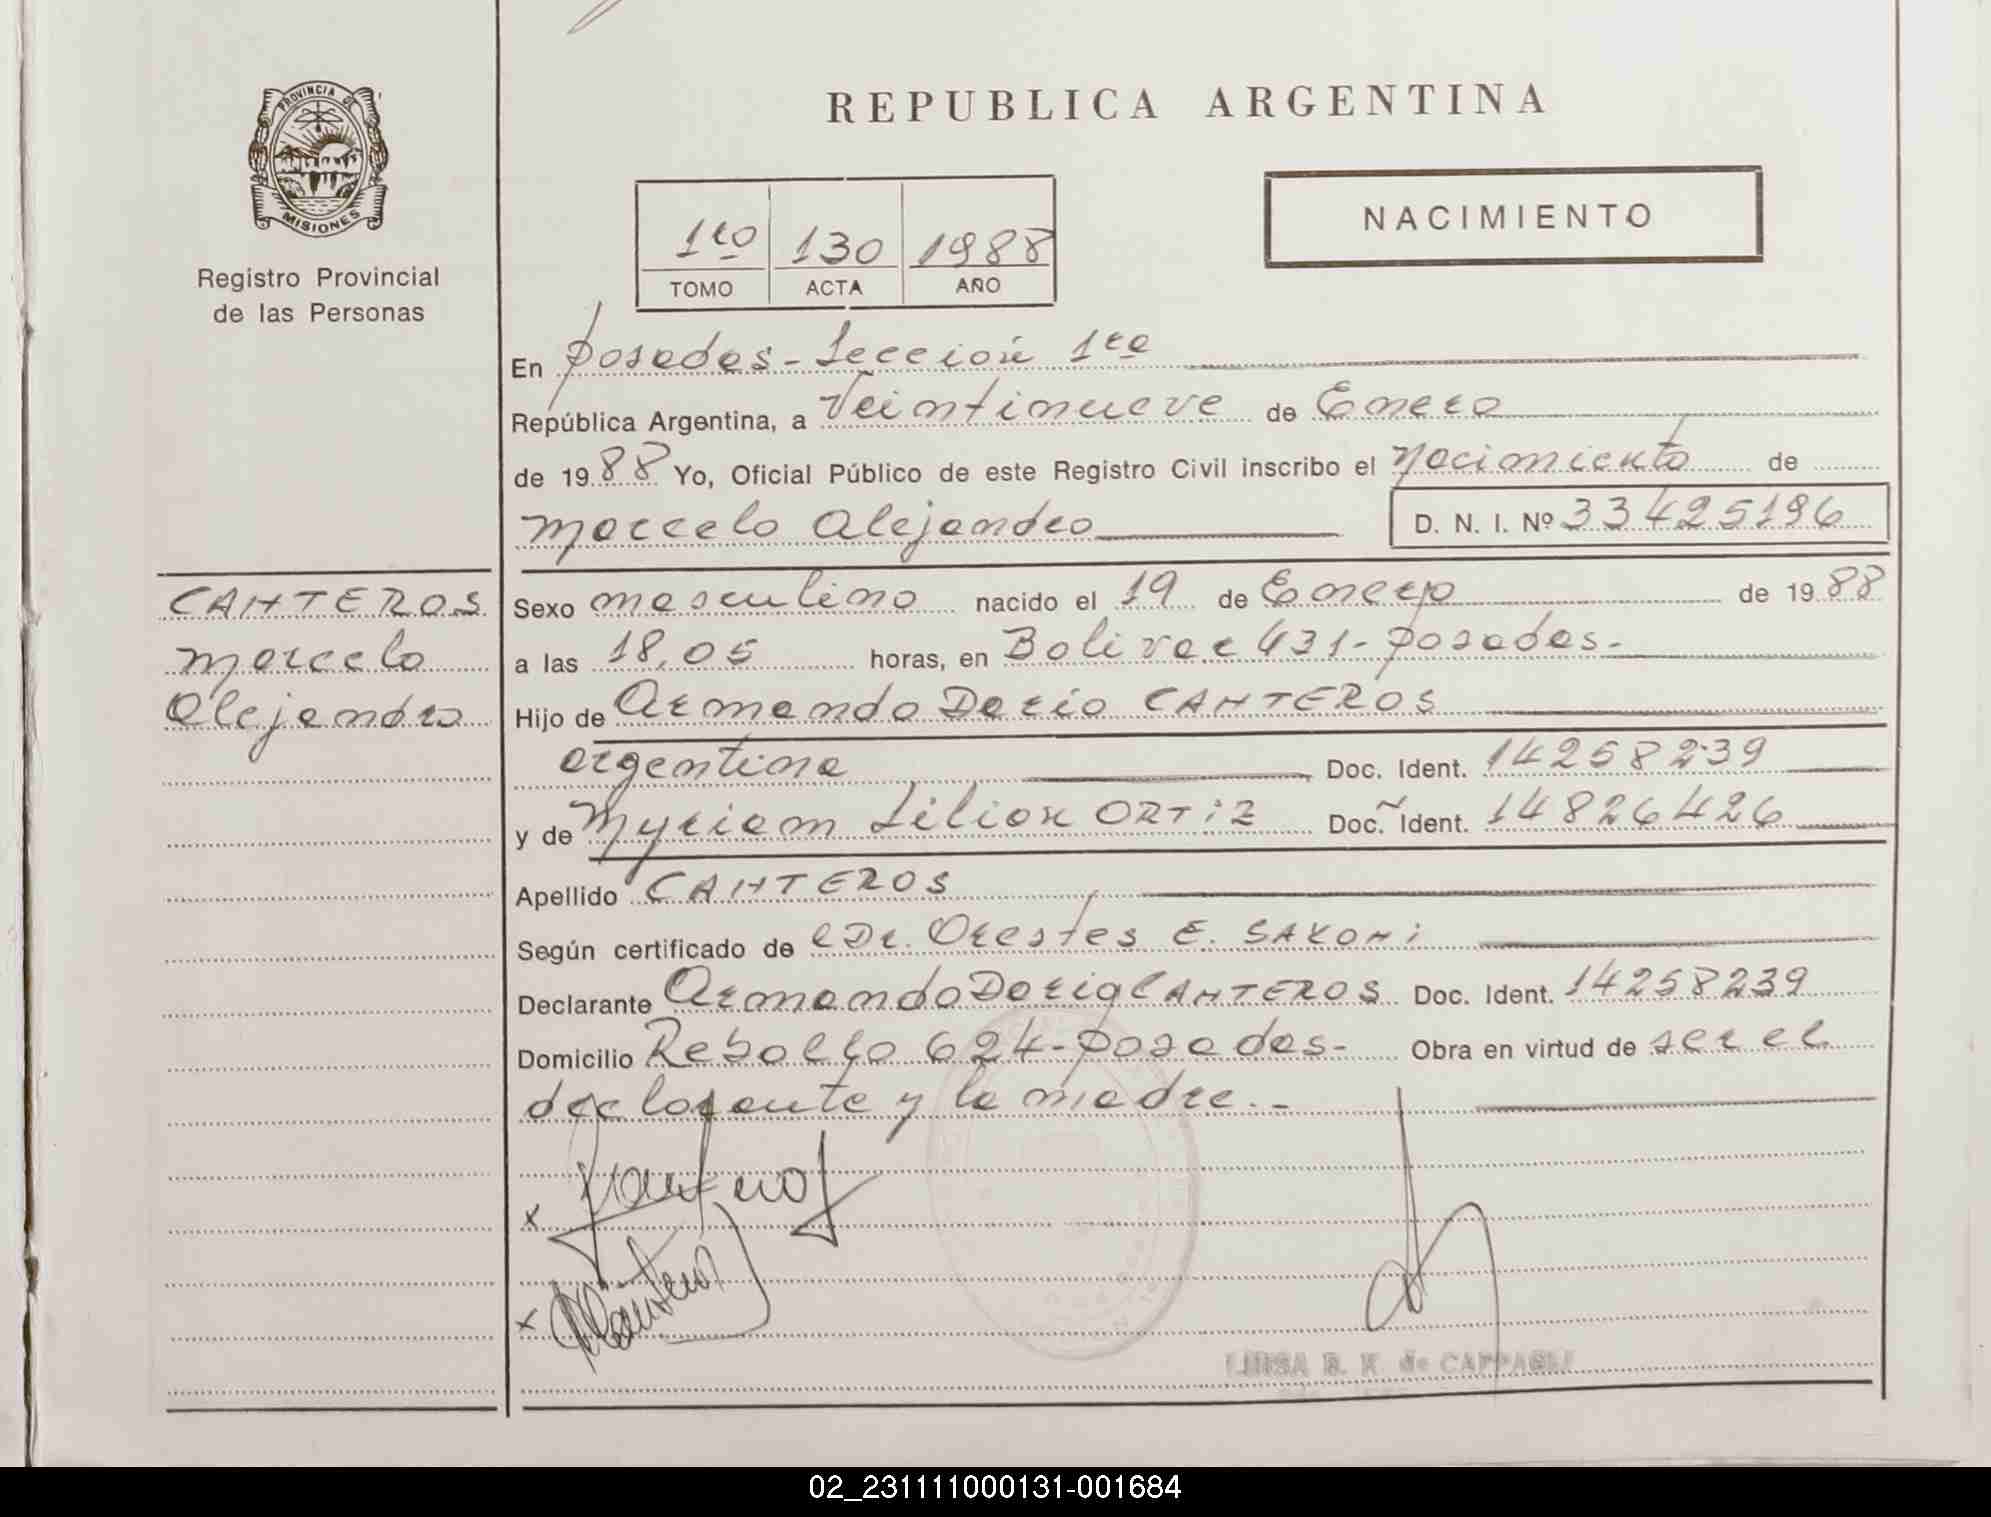 PROVINCIA DE
MISIONES
Registro Provincial
de las Personas
REPUBLICA ARGENTINA
NACIMIENTO
1ro 130 1988
TOMO ACTA AÑO
En Posadas - Sección 1ra
República Argentina, a Veintinueve de Enero
de 1988 Yo, Oficial Público de este Registro Civil inscribo el Nacimiento de
Marcelo Alejandro D. N. I. Nº 33425196
CANTEROS
Marcelo
Alejandro
Sexo masculino nacido el 19 de Enero de 1988
a las 18.05 horas, en Bolivar 431 - Posadas.-
Hijo de Armando Dario CANTEROS
argentina Doc. Ident. 14258239
y de Myriam Lilian ORTIZ Doc. Ident. 14826426
Apellido CANTEROS
Según certificado de el Dr. Orestes E.
Declarante Armando Dario CANTEROS Doc. Ident. 14258239
Domicilio Rebollo 624 - Posadas - Obra en virtud de ser el
declarante y la madre.-
x
x
LUISA B. K. de CAPPAGLI
02_231111000131-001684